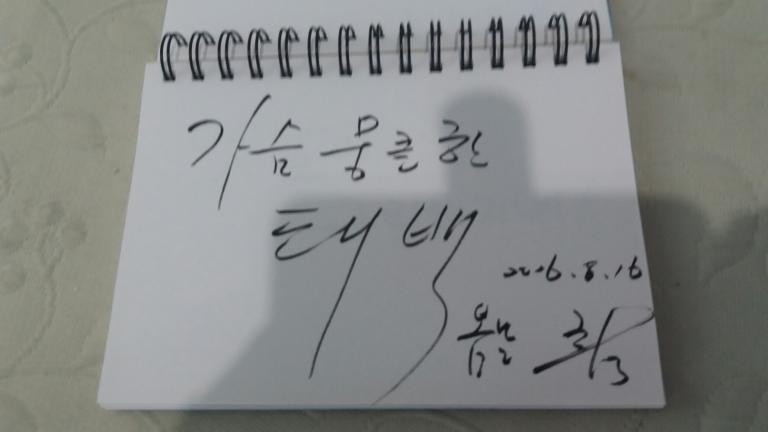 가슴 뭉클한
태백
2016.8.16